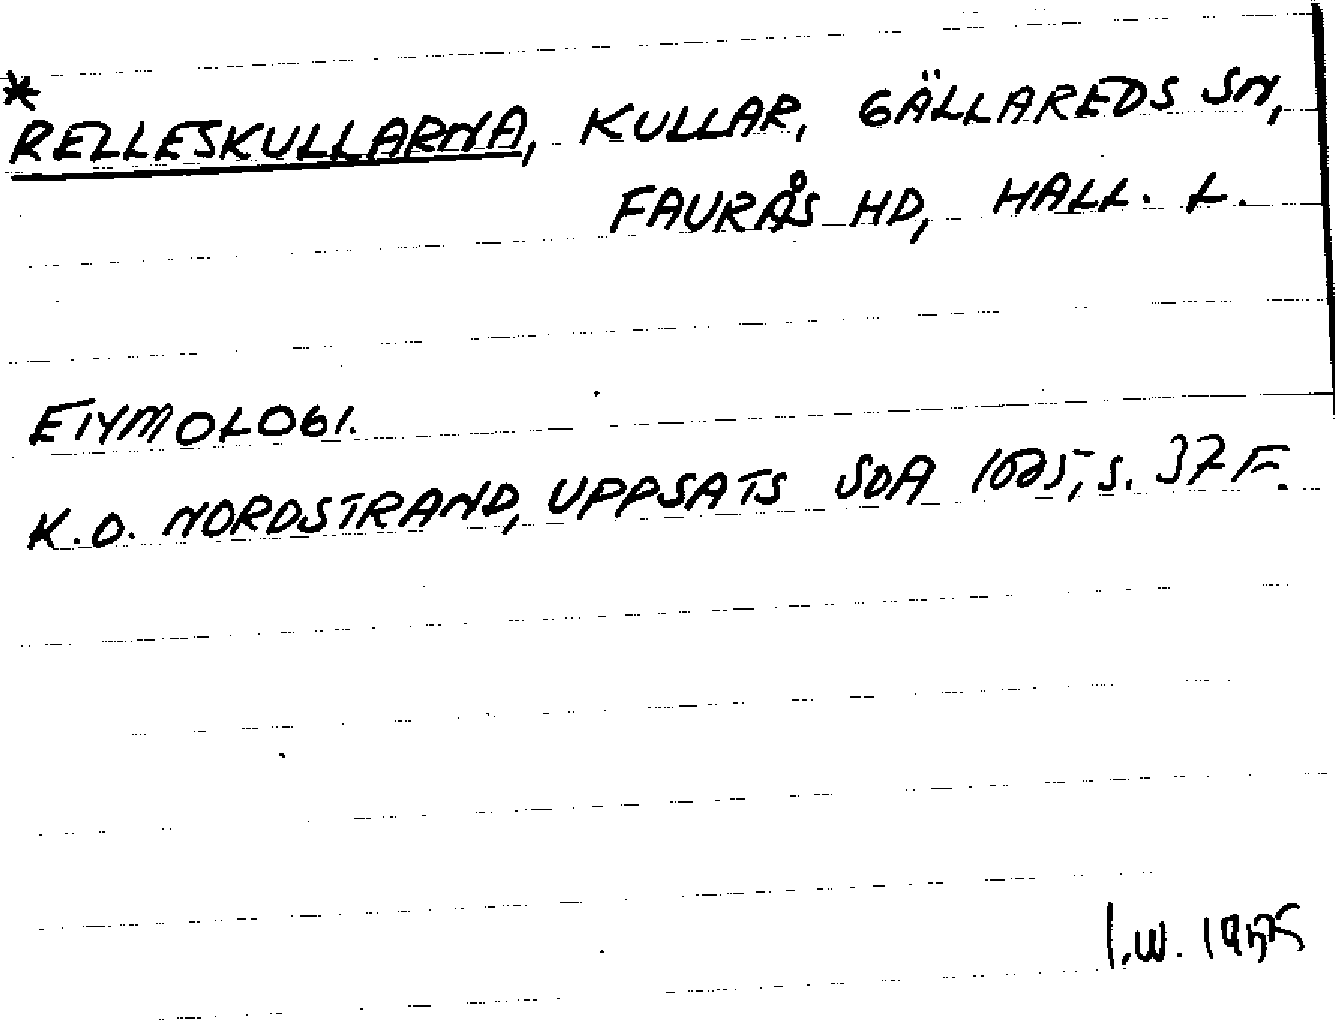 *
RELLESKULLARNA, KULLAR, GÄLLAREDS SN,
FAURÅS HD, HALL. L.
ETYMOLOGI.
K.O. NORDSTRAND, UPPSATS SOA S. 37 F.
I.W.